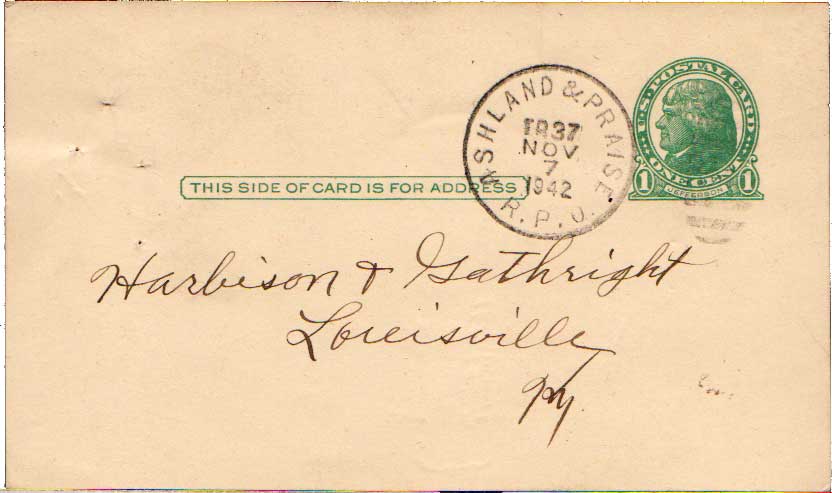 ASHLAND & PRAISE
R.P.O.
TR37
NOV
7
1942
U.S. POSTAL CARD
1 ONE CENT 1
JEFFERSON
THIS SIDE OF CARD IS FOR ADDRESS
Harbison & Gathright
Louisville
Ky.